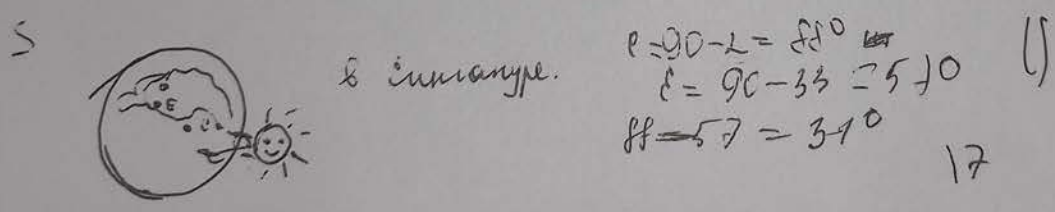 5
в сингапуре.
l = 90 - 2 = 88°
ε = 90 - 33 = 57°
88 - 57 = 31°
17